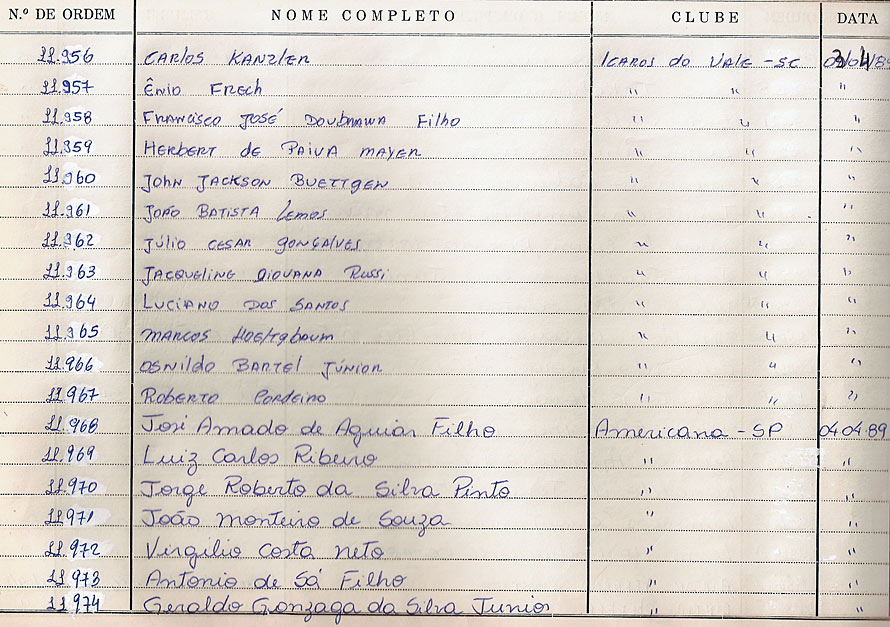 N.º DE ORDEM NOME COMPLETO CLUBE DATA
11.956 CARLOS KANZLER ICAROS do VALE - SC
11.957 ÊNIO FRECH " " "
11.958 FRANCISCO JOSÉ Filho " " "
11.959 HERBERT de PAIVA MAYER " " "
11.960 JOHN JACKSON BUETTGEN " " "
11.961 JOÃO BATISTA Lemos " " "
11.962 JÚLIO CESAR GONÇALVES " " "
11.963 JACQUELINE GIOVANA Russi " " "
11.964 LUCIANO DOS SANTOS " " "
11.965 MARCOS " " "
11.966 OSNILDO BARTEL JÚNIOR " " "
11.967 ROBERTO CORDEIRO " " "
11.968 José Amado de Aguiar Filho Americana - SP 04.04.89
11.969 Luiz Carlos Ribeiro " "
11.970 Jorge Roberto da Silva Pinto " "
11.971 João Monteiro de Souza " "
11.972 Virgilio Costa Neto " "
11.973 Antonio de Sá Filho " "
11.974 Geraldo Gonzaga da Silva Junior " "